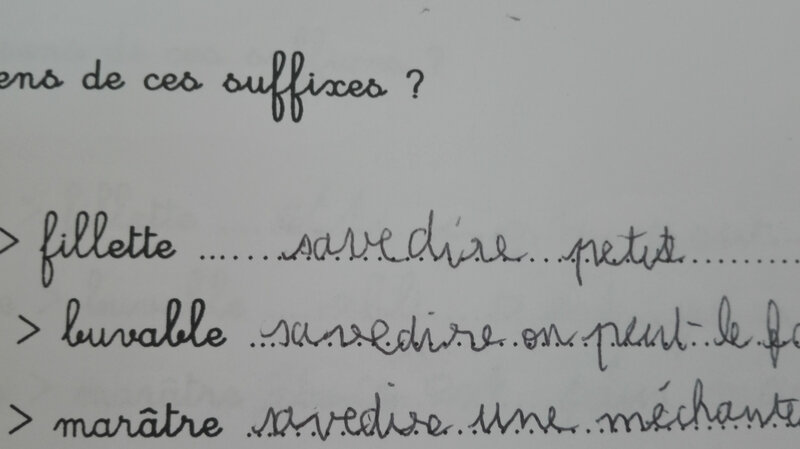 ens de ces suffixes ?
> fillette ....... savedire ... petit ..........
> buvable ... savedire on peut le fa
> marâtre ... savedire une méchante